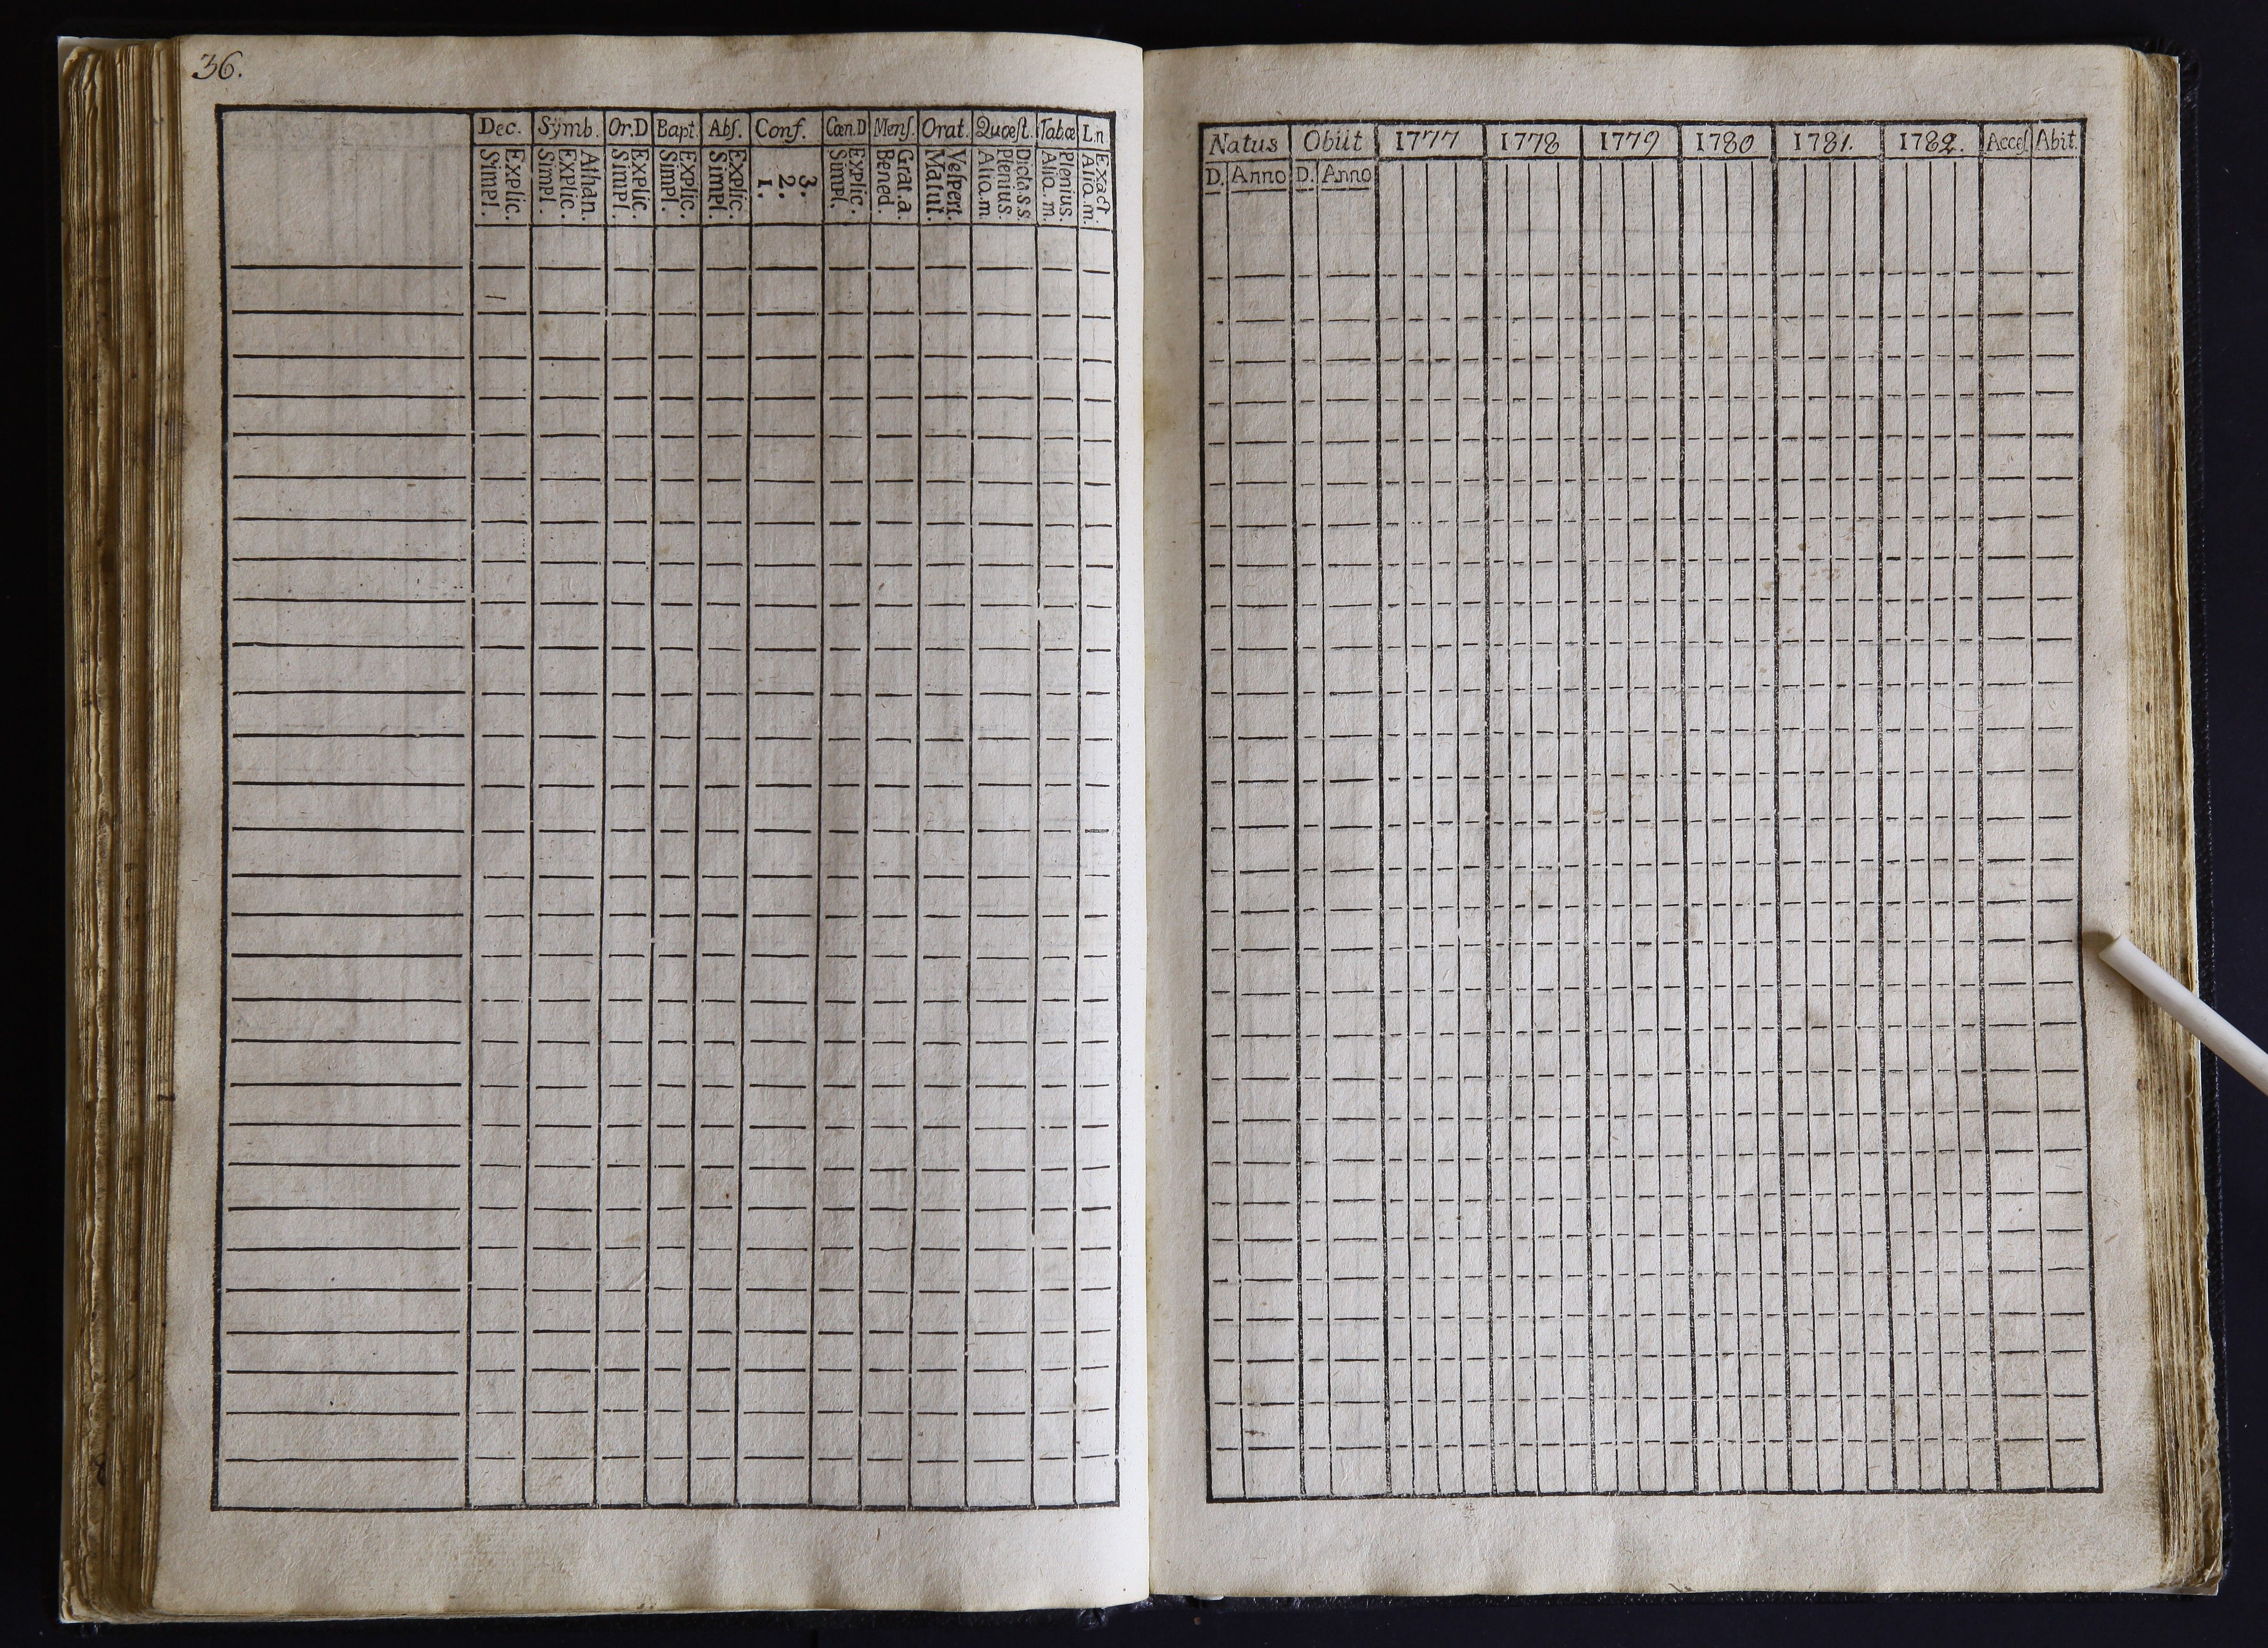 36.
Dec. Sÿmb. Or.D Bapt. Abſ. Conf. Cœn.D Menſ. Orat. Quœſt. Tab.œ L.n
Explic. Simpl.
Athan. Explic. Simpl.
Explic. Simpl.
Explic. Simpl.
Explic. Simpl.
3. 2. 1.
Explic. Simpl.
Grat.a. Bened.
Veſpert. Matut.
Dicta.s.s. Plenius. Aliq.m.
Plenius. Aliq.m.
Exact. Aliq.m.
Natus Obiit 1777 1778 1779 1780 1781. 1782. Acceſ. Abit.
D. Anno D. Anno